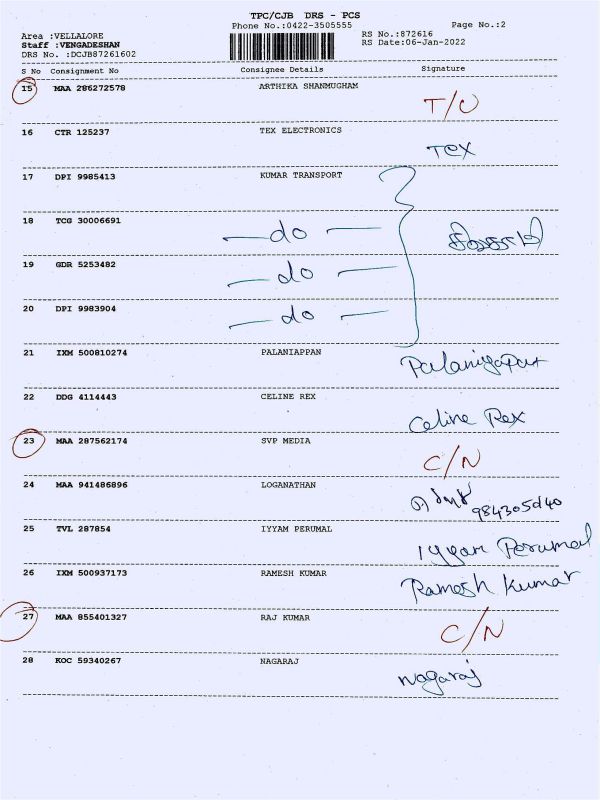 TPC/CJB DRS - PCS
Phone No.:0422-3505555 Page No.:2
Area :VELLALORE RS No.:872616
Staff :VENGADESHAN RS Date:06-Jan-2022
DRS No. :DCJB87261602
S No Consignment No Consignee Details Signature
15 MAA 286272578 ARTHIKA SHANMUGHAM T/O
16 CTR 125237 TEX ELECTRONICS TEX
17 DPI 9985413 KUMAR TRANSPORT
18 TCG 30006691 — do —
19 GDR 5253482 — do —
20 DPI 9983904 — do —
21 IXM 500810274 PALANIAPPAN
22 DDG 4114443 CELINE REX Celine Rex
23 MAA 287562174 SVP MEDIA C/N
24 MAA 941486896 LOGANATHAN
25 TVL 287854 IYYAM PERUMAL Iyyam Perumal
26 IXM 500937173 RAMESH KUMAR Ramesh Kumar
27 MAA 855401327 RAJ KUMAR C/N
28 KOC 59340267 NAGARAJ Nagaraj